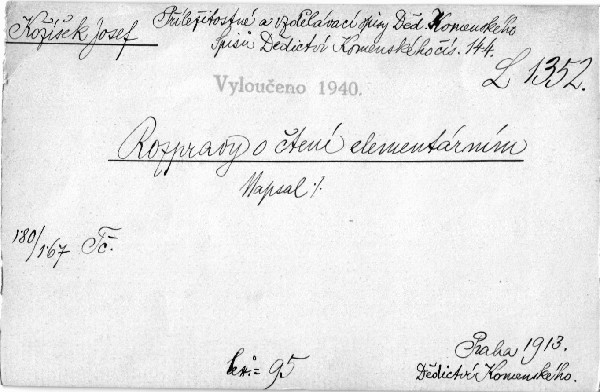 Kožíšek Josef
Příležitostné a vzdělávací spisy Děd. Komenského
Spisů Dědictví Komenského čís. 144.
L 1352.
Vyloučeno 1940.
Rozpravy o čtení elementárním
Napsal :/.
180/167 Tč.
Praha 1913.
= 95
Dědictví Komenského.